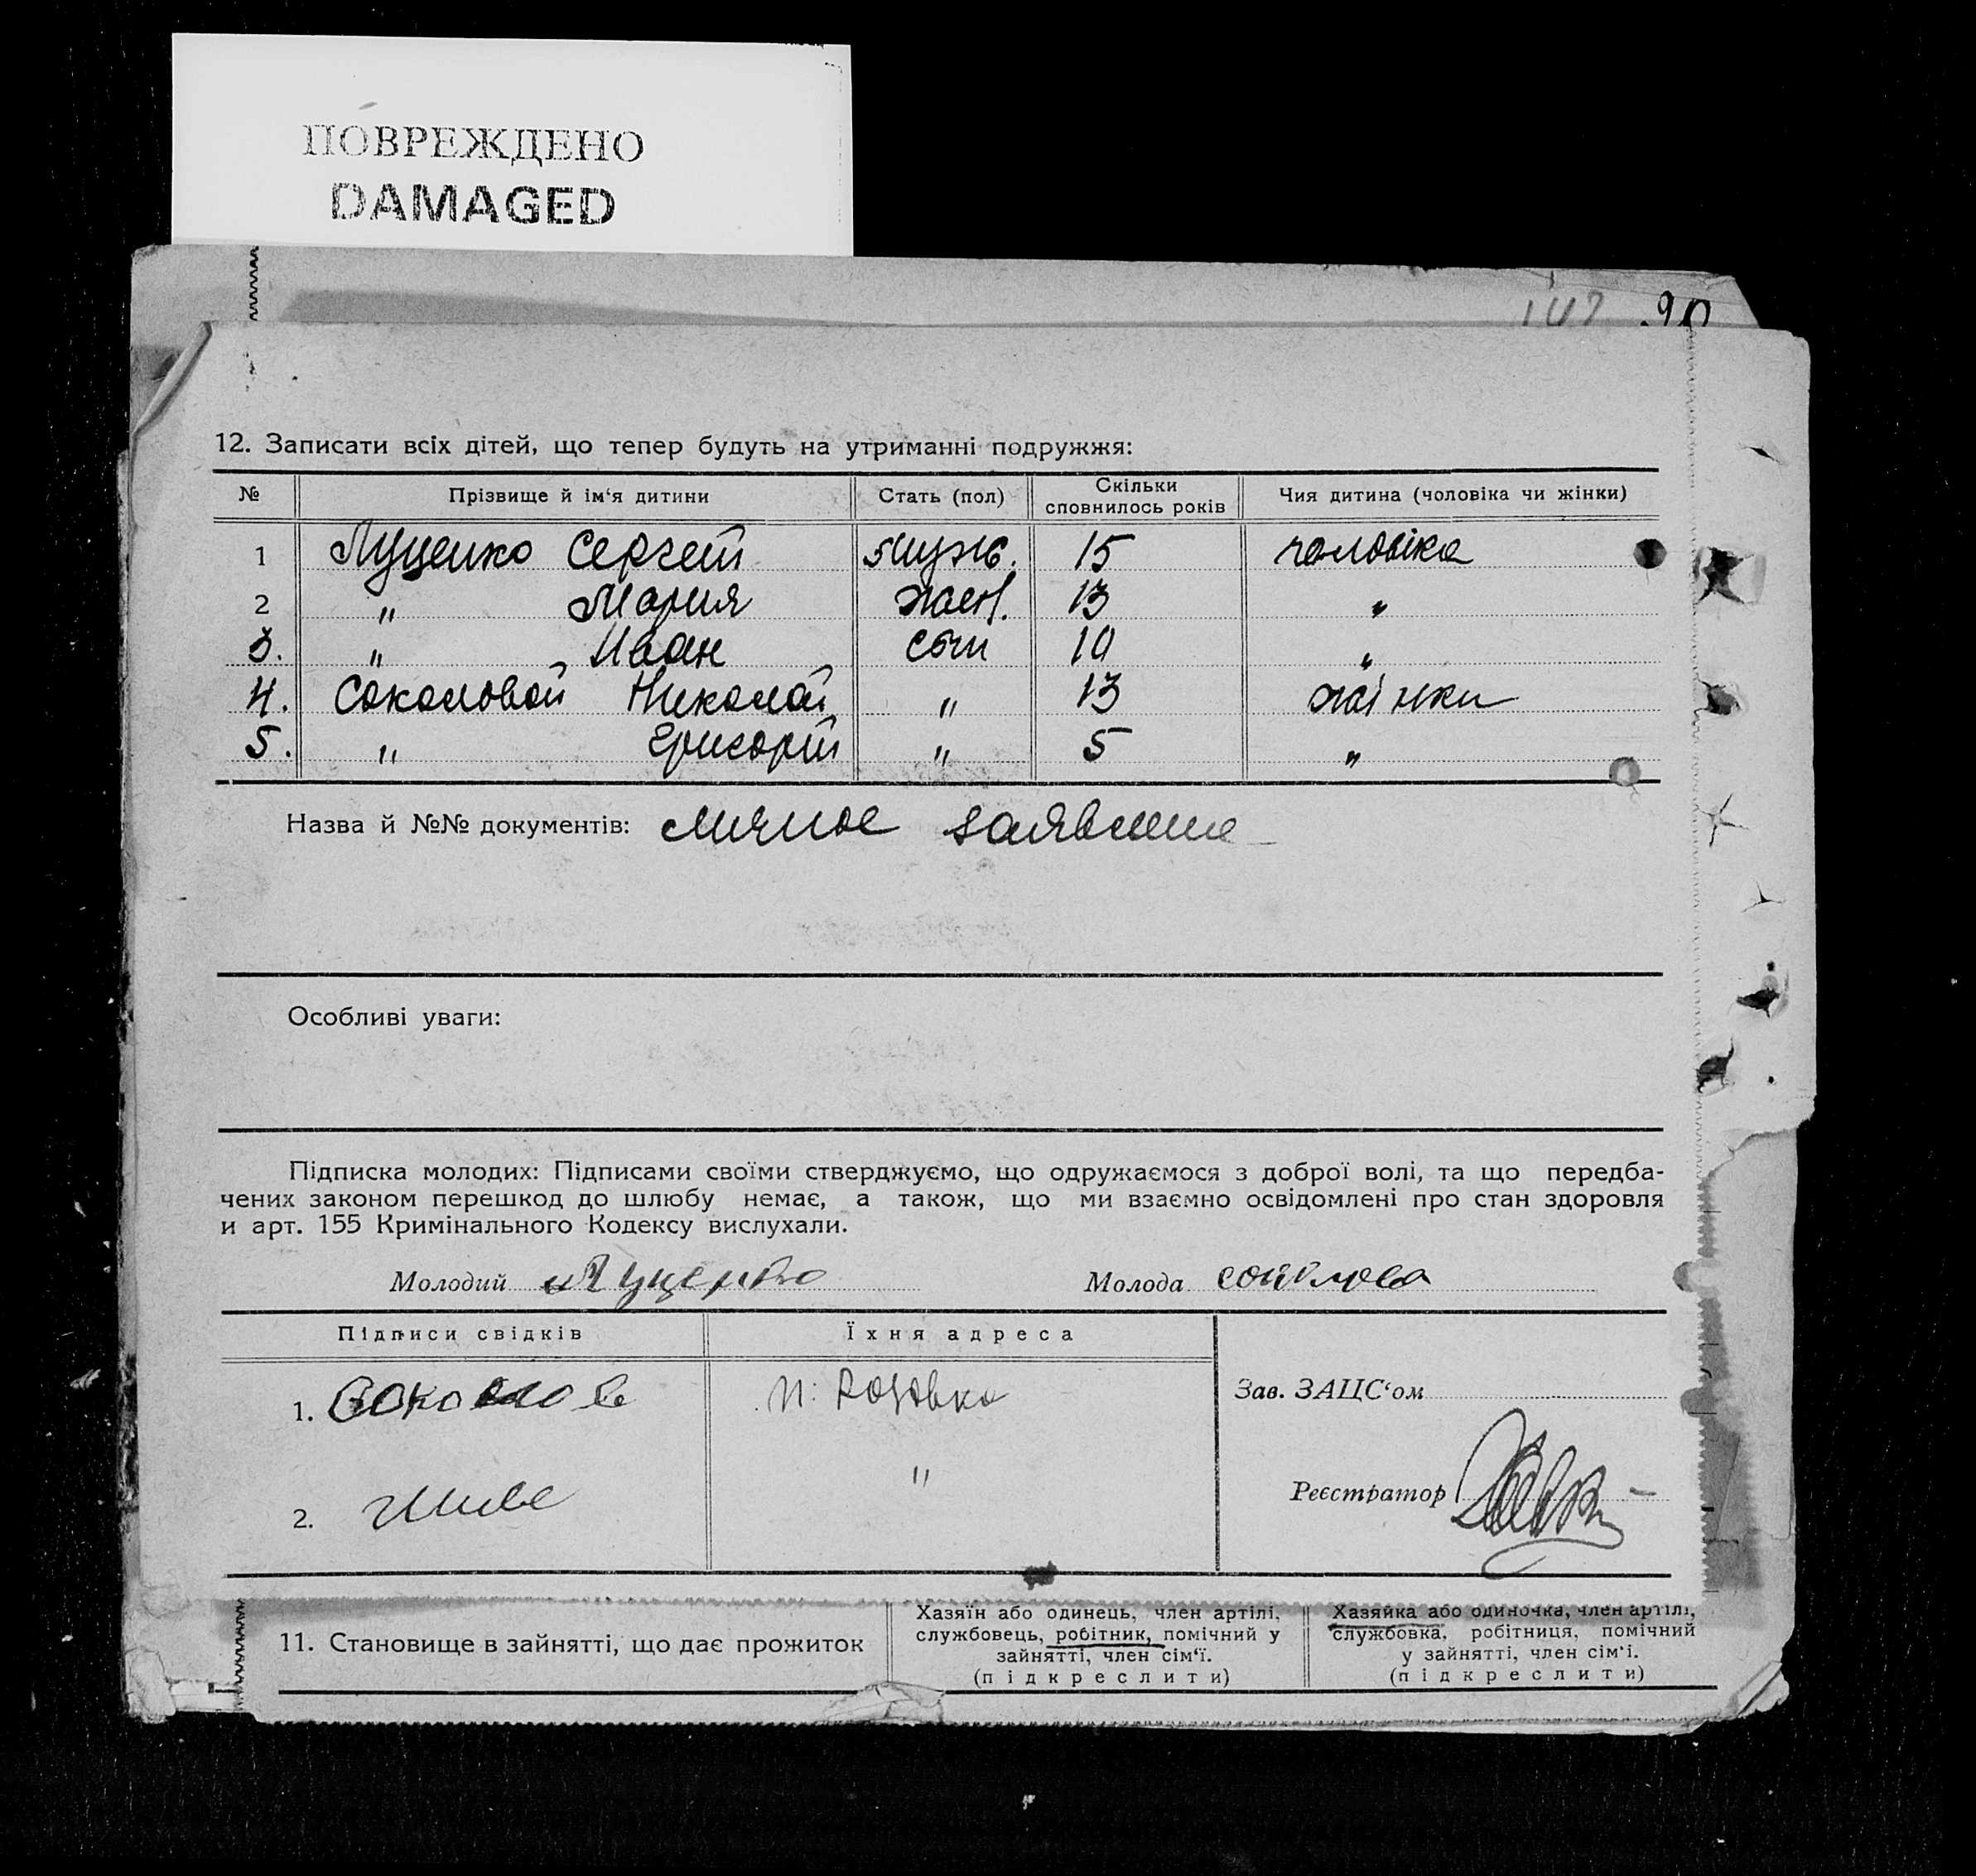 ПОВРЕЖДЕНО
DAMAGED
147 90
12. Записати всіх дітей, що тепер будуть на утриманні подружжя:
№ Прізвище й ім‘я дитини Стать (пол) Скільки сповнилось років Чия дитина (чоловіка чи жінки)
1 Луценко Сергей муж. 15 чоловіка
2 " Мария жен. 13 "
3. " Иван 10 "
4. Соколовой Николай " 13 жінки
5. " Григорий " 5 "
Назва й №№ документів: личное заявление
Особливі уваги:
Підписка молодих: Підписами своїми стверджуємо, що одружаємося з доброї волі, та що передба-
чених законом перешкод до шлюбу немає, а також, що ми взаємно освідомлені про стан здоровля
и арт. 155 Кримінального Кодексу вислухали.
Молодий Луценко Молода
Підписи свідків Їхня адреса
1. Соколов Зав. ЗАЦС‘ом
2. " Реєстратор
11. Становище в зайнятті, що дає прожиток
Хазяїн або одинець, член артілі,
службовець, робітник, помічний у
зайнятті, член сім‘ї.
(підкреслити)
Хазяйка або одиночка, член артілі,
службовка, робітниця, помічний
у зайнятті, член сім‘ї.
(підкреслити)